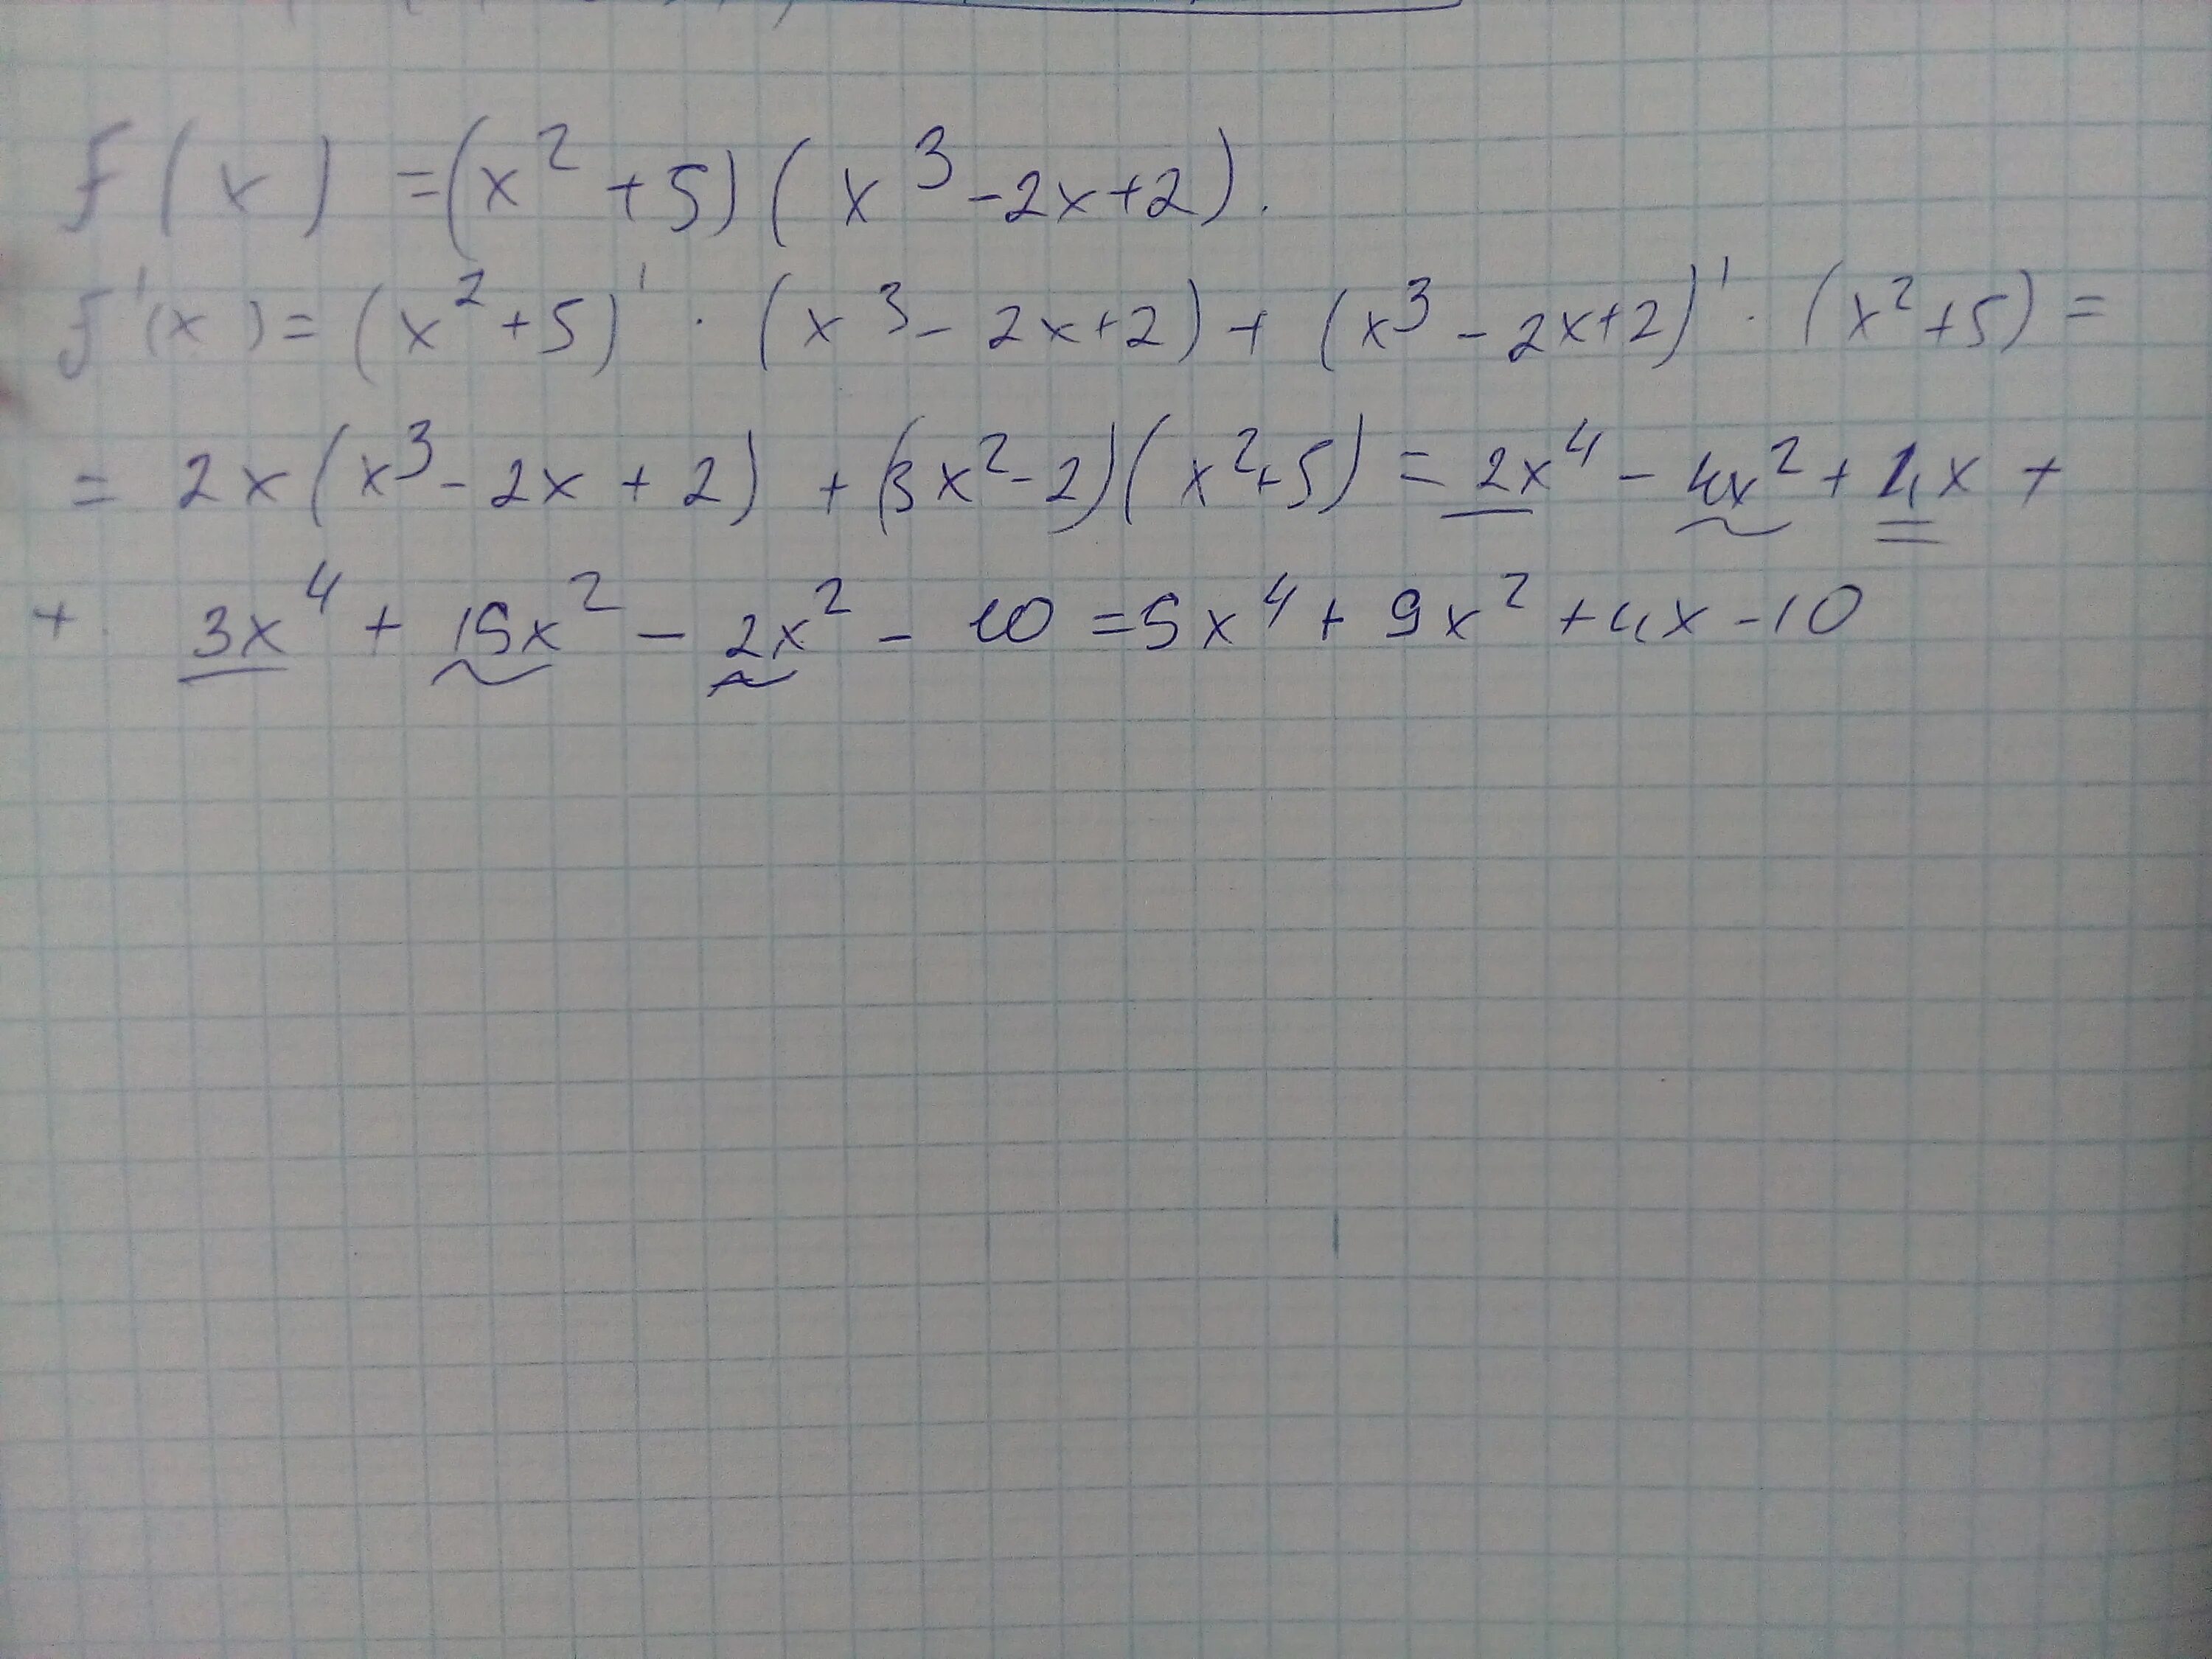 f(x) = (x² + 5)(x³ - 2x + 2).
f'(x) = (x² + 5)' · (x³ - 2x + 2) + (x³ - 2x + 2)' · (x² + 5) =
= 2x(x³ - 2x + 2) + (3x² - 2)(x² + 5) = 2x⁴ - 4x² + 4x +
+ 3x⁴ + 15x² - 2x² - 10 = 5x⁴ + 9x² + 4x - 10